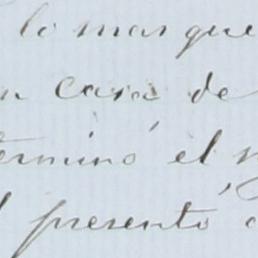 lo mas que
casa de
terminó el
presentó